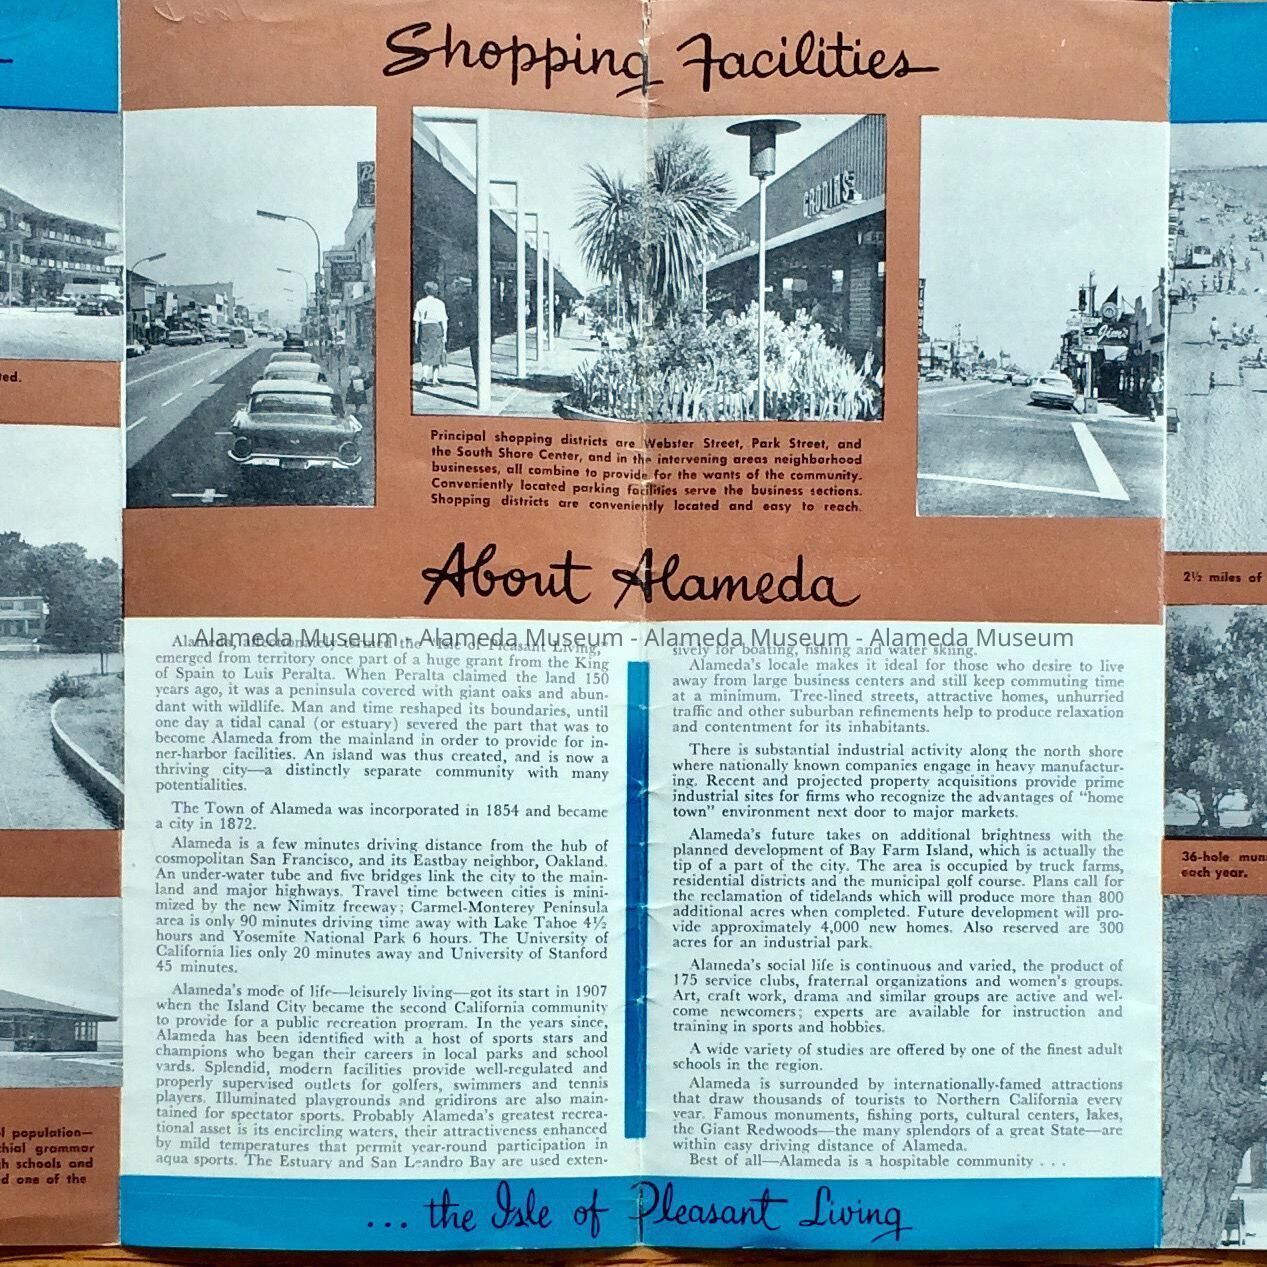 Shopping Facilities
Grodins
ted.
Principal shopping districts are Webster Street, Park Street, and
the South Shore Center, and in the intervening areas neighborhood
businesses, all combine to provide for the wants of the community.
Conveniently located parking facilities serve the business sections.
Shopping districts are conveniently located and easy to reach.
About Alameda
Alameda Museum - Alameda Museum - Alameda Museum - Alameda Museum
Alameda, affectionately termed the "Isle of Pleasant Living,"
emerged from territory once part of a huge grant from the King
of Spain to Luis Peralta. When Peralta claimed the land 150
years ago, it was a peninsula covered with giant oaks and abun-
dant with wildlife. Man and time reshaped its boundaries, until
one day a tidal canal (or estuary) severed the part that was to
become Alameda from the mainland in order to provide for in-
ner-harbor facilities. An island was thus created, and is now a
thriving city—a distinctly separate community with many
potentialities.
The Town of Alameda was incorporated in 1854 and became
a city in 1872.
Alameda is a few minutes driving distance from the hub of
cosmopolitan San Francisco, and its Eastbay neighbor, Oakland.
An under-water tube and five bridges link the city to the main-
land and major highways. Travel time between cities is mini-
mized by the new Nimitz freeway; Carmel-Monterey Peninsula
area is only 90 minutes driving time away with Lake Tahoe 4½
hours and Yosemite National Park 6 hours. The University of
California lies only 20 minutes away and University of Stanford
45 minutes.
Alameda's mode of life—leisurely living—got its start in 1907
when the Island City became the second California community
to provide for a public recreation program. In the years since,
Alameda has been identified with a host of sports stars and
champions who began their careers in local parks and school
yards. Splendid, modern facilities provide well-regulated and
properly supervised outlets for golfers, swimmers and tennis
players. Illuminated playgrounds and gridirons are also main-
tained for spectator sports. Probably Alameda's greatest recrea-
tional asset is its encircling waters, their attractiveness enhanced
by mild temperatures that permit year-round participation in
aqua sports. The Estuary and San Leandro Bay are used exten-
sively for boating, fishing and water skiing.
Alameda's locale makes it ideal for those who desire to live
away from large business centers and still keep commuting time
at a minimum. Tree-lined streets, attractive homes, unhurried
traffic and other suburban refinements help to produce relaxation
and contentment for its inhabitants.
There is substantial industrial activity along the north shore
where nationally known companies engage in heavy manufactur-
ing. Recent and projected property acquisitions provide prime
industrial sites for firms who recognize the advantages of "home
town" environment next door to major markets.
Alameda's future takes on additional brightness with the
planned development of Bay Farm Island, which is actually the
tip of a part of the city. The area is occupied by truck farms,
residential districts and the municipal golf course. Plans call for
the reclamation of tidelands which will produce more than 800
additional acres when completed. Future development will pro-
vide approximately 4,000 new homes. Also reserved are 300
acres for an industrial park.
Alameda's social life is continuous and varied, the product of
175 service clubs, fraternal organizations and women's groups.
Art, craft work, drama and similar groups are active and wel-
come newcomers; experts are available for instruction and
training in sports and hobbies.
A wide variety of studies are offered by one of the finest adult
schools in the region.
Alameda is surrounded by internationally-famed attractions
that draw thousands of tourists to Northern California every
year. Famous monuments, fishing ports, cultural centers, lakes,
the Giant Redwoods—the many splendors of a great State—are
within easy driving distance of Alameda.
Best of all—Alameda is a hospitable community . . .
... the Isle of Pleasant Living
l population—
chial grammar
h schools and
d one of the
2½ miles of
36-hole mun
each year.